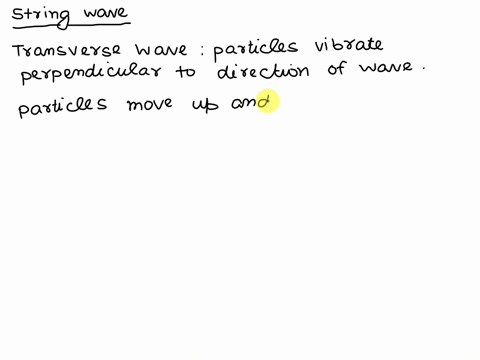 String wave
Transverse wave : particles vibrate
perpendicular to direction of wave .
particles move up and